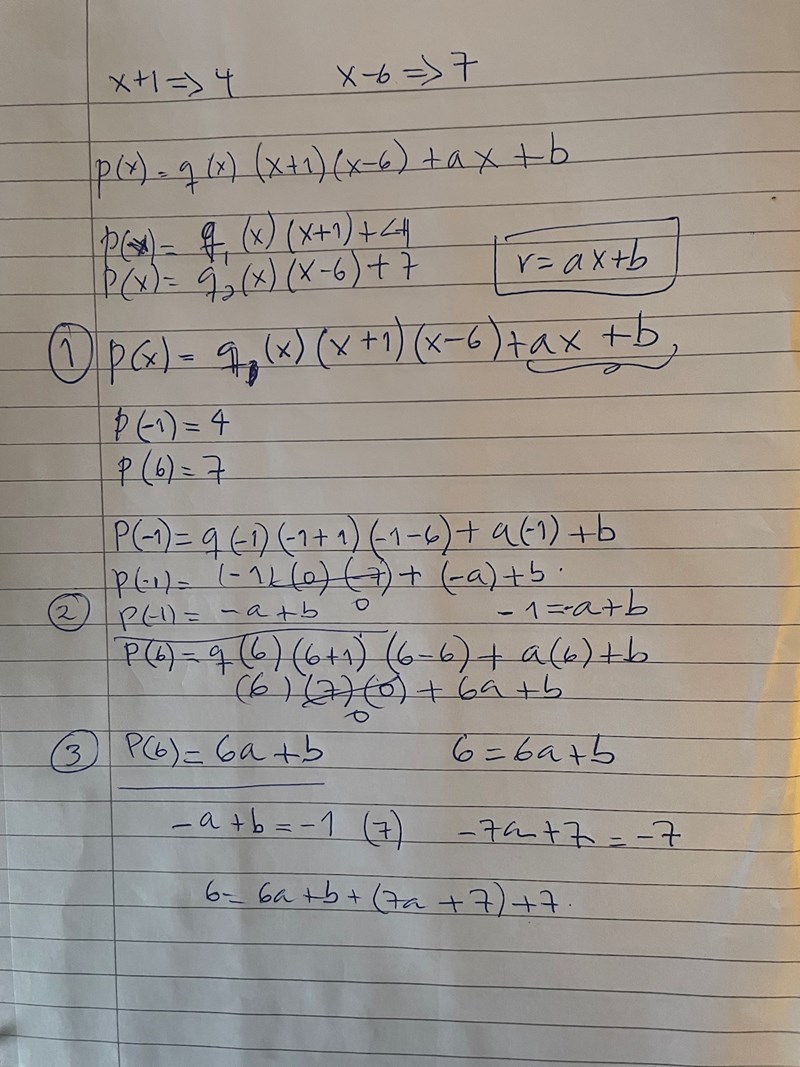 x+1 => 4 x-6 => 7
p(x) = q(x) (x+1)(x-6) + ax + b
p(x) = q₁(x)(x+1)+4
p(x) = q₂(x)(x-6)+7 r = ax+b
① p(x) = q(x)(x+1)(x-6)+ax+b
p(-1) = 4
p(6) = 7
P(-1) = q(-1)(-1+1)(-1-6) + a(-1) + b
p(-1) = (-1)(0)(-7) + (-a) + b
② p(-1) = -a+b 0 -1=-a+b
P(6) = q(6)(6+1)(6-6) + a(6) + b
(6)(7)(0) + 6a + b
0
③ P(6) = 6a+b 6 = 6a+b
-a+b = -1 (7) -7a+7 = -7
6 = 6a+b+(7a+7)+7.